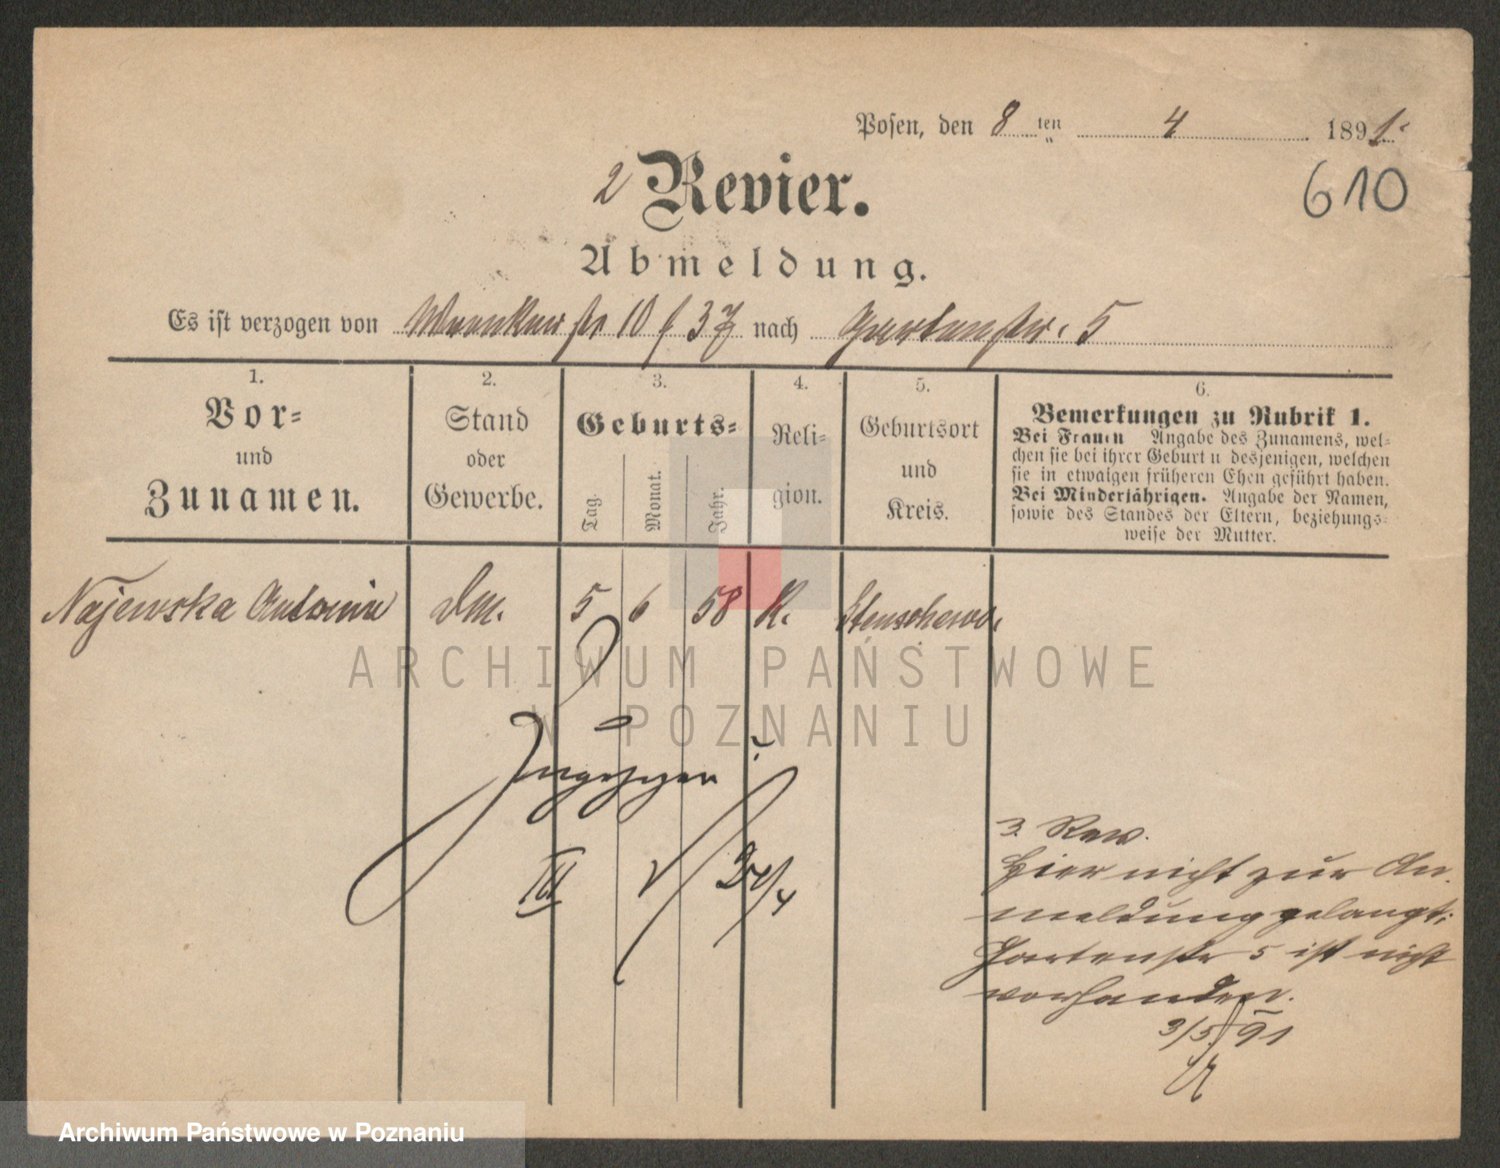 Posen, den 8 ten 4 1891.
610
2 Revier.
Abmeldung.
Es ist verzogen von Wronker str 10 f 37 nach Gartenstr. 5
1.
Vor-
und
Zunamen.
2.
Stand
oder
Gewerbe.
3.
Geburts-
Tag.
Monat.
Jahr.
4.
Reli-
gion.
5.
Geburtsort
und
Kreis.
6.
Bemerkungen zu Rubrik 1.
Bei Frauen Angabe des Zunamens, wel-
chen sie bei ihrer Geburt u desjenigen, welchen
sie in etwaigen früheren Ehen geführt haben.
Bei Minderjährigen. Angabe der Namen,
sowie des Standes der Eltern, beziehungs-
weise der Mutter.
Najewska Antonia Dm. 5 6 58 K. Stenschewo.
ARCHIWUM PAŃSTWOWE
W POZNANIU
Zugezogen
III
3. Rev.
Hier nicht zur An-
meldung gelangt;
Gartenstr 5 ist nicht
vorhanden.
3/5 91
Archiwum Państwowe w Poznaniu